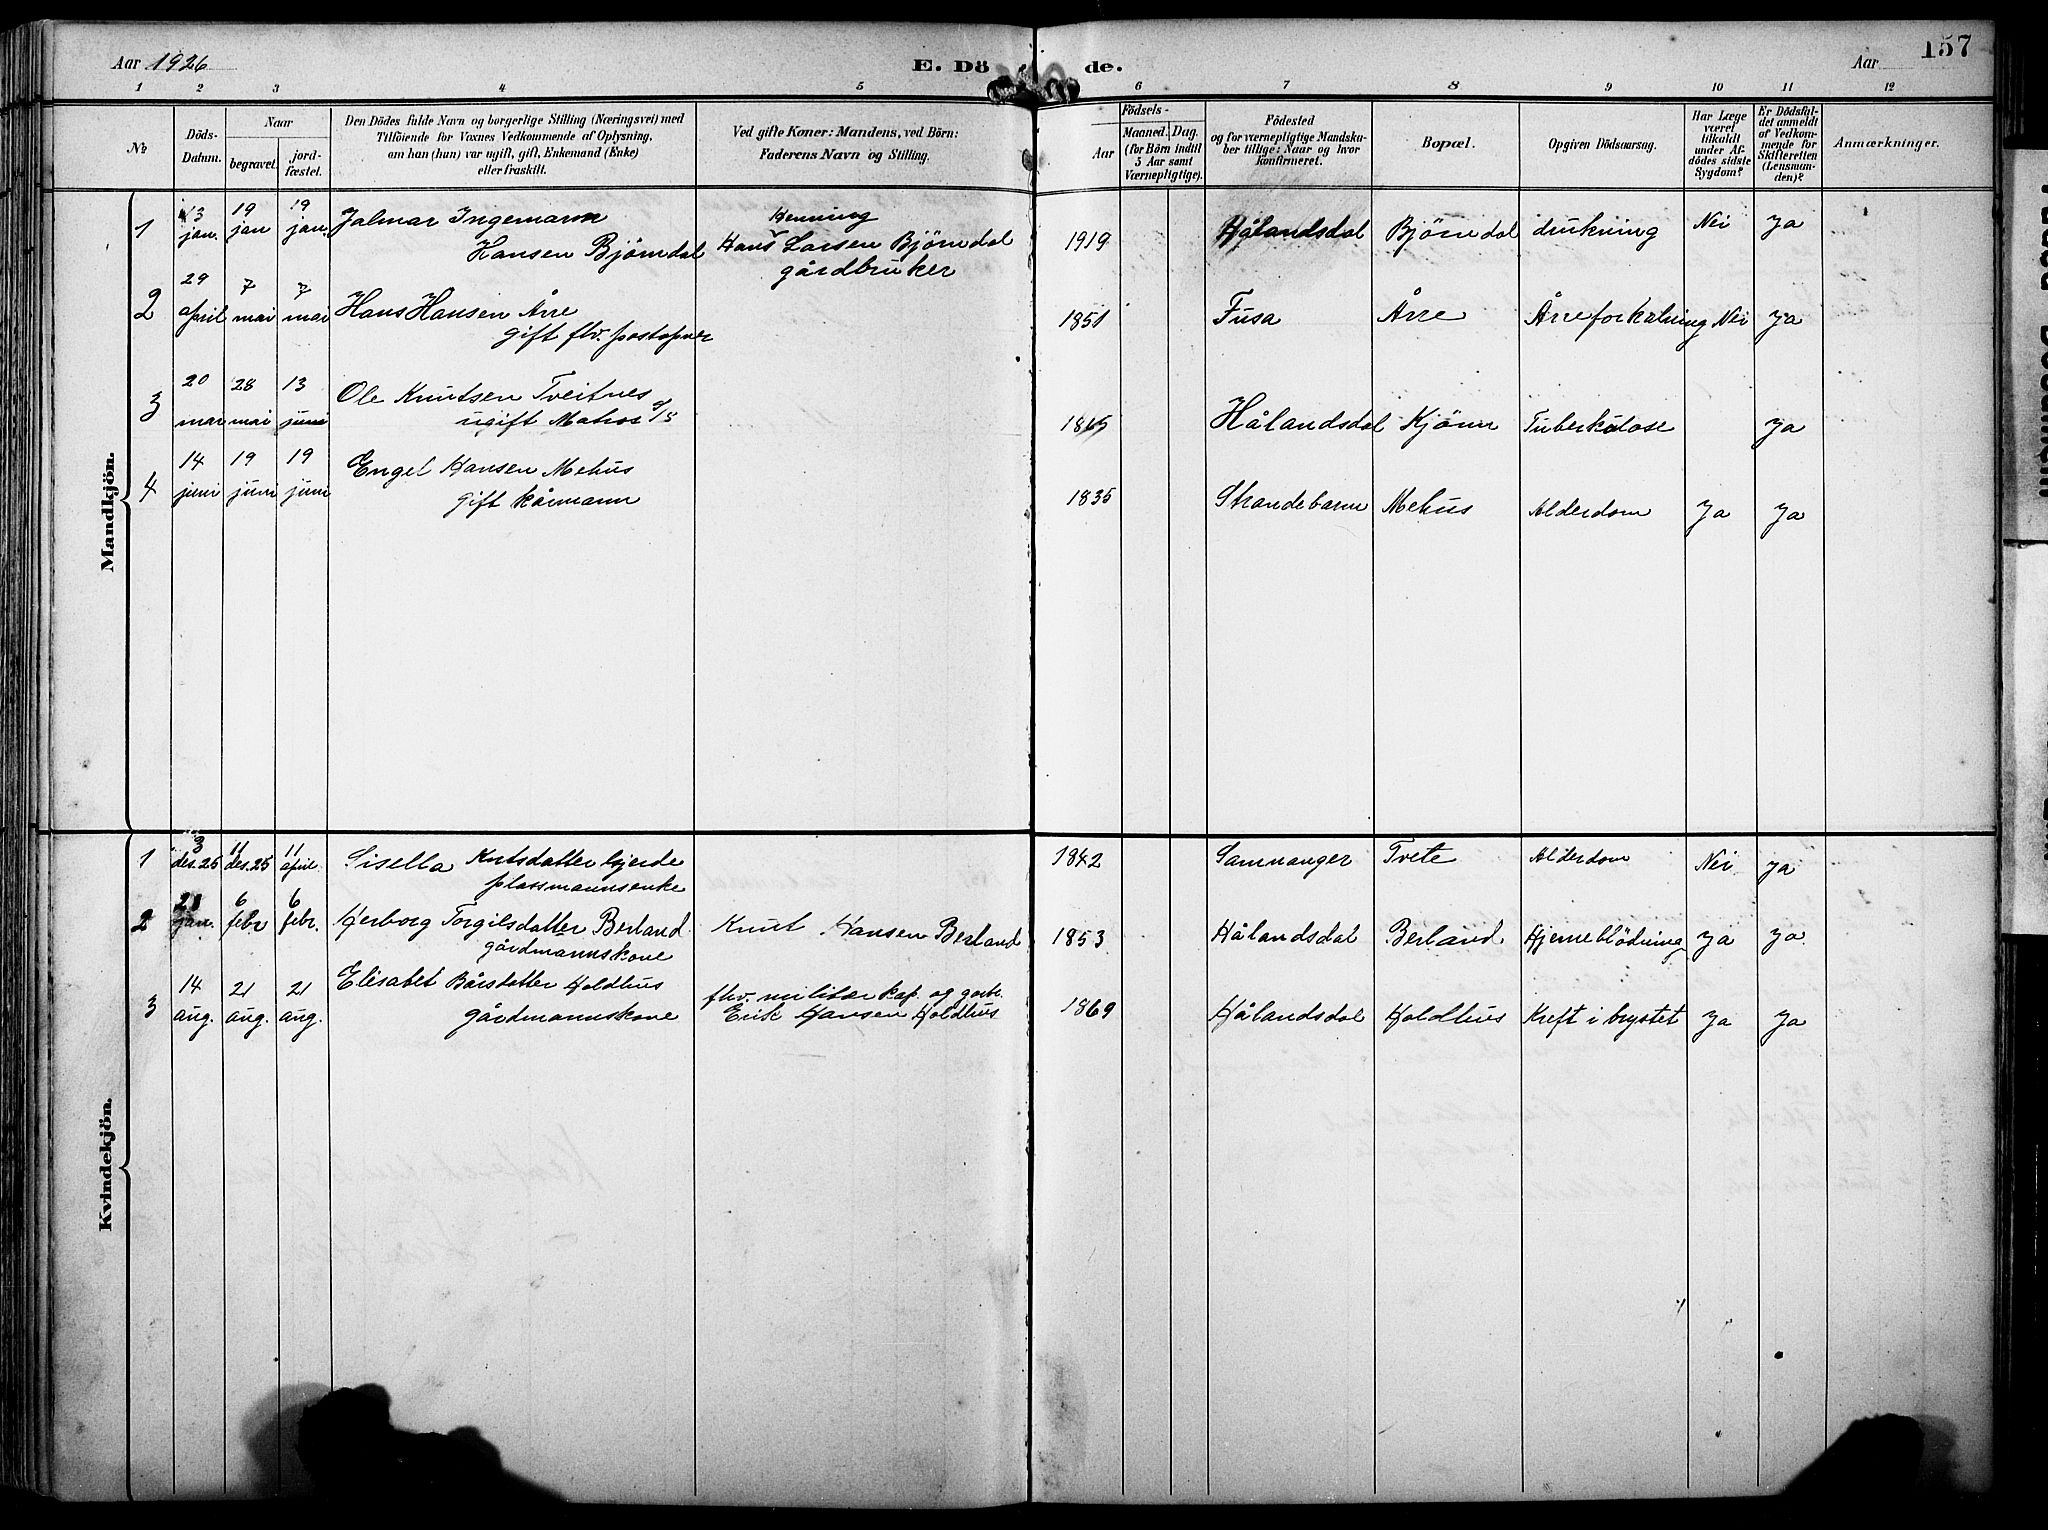 Aar 1926
E. Döde.
Aar
157
1 2 3 4 5 6 7 8 9 10 11 12
No
Döds-Datum.
Naar
begravet.
jordfæstet.
Den Dödes fulde Navn og borgerlige Stilling (Næringsvei) med
Tilföiende for Voxnes Vedkommende af Oplysning,
om han (hun) var ugift, gift, Enkemand (Enke)
eller fraskilt.
Ved gifte Koner: Mandens, ved Börn:
Faderens Navn og Stilling.
Födsels-
Aar
Maaned. Dag.
(for Börn indtil
5 Aar samt
Værnepligtige).
Födested
og for værnepligtige Mandska-
ber tillige: Naar og hvor
Konfirmeret.
Bopæl.
Opgiven Dödsaarsag.
Har Læge
været
tilkaldt
under Af-
dödes sidste
Sygdom?
Er Dödsfal-
det anmeldt
af Vedkom-
mende for
Skifteretten
(Lensman-
den)?
Anmærkninger.
Mandkjön.
1 13 jan. 19 jan 19 jan. Jalmar Ingemann
Hansen Björndal
Henning
Hans Larsen Bjørndal
gårdbruker
1919 Hålandsdal Bjørndal drukning Nei Ja
2 29 april 7 mai 7 mai Hans Hansen Årre
gift fhv. postopner
1851 Fusa Årre Årreforkalning Nei Ja
3 20 mar 28 mai 13 juni Ole Knutsen Tveitnes
ugift Matros
Hålandsdal Tuberkulose Ja
4 14 juni 19 juni 19 juni Engel Hansen Mehus
gift kårmann
1835 Strandebarm Mehus Alderdom Ja Ja
Kvindekjön.
1 3 des. 25 11 des. 25 11 april. Sisella Knutsdatter Gjerde
plassmannsenke
1842 Samnanger Tvete Alderdom Nei Ja
2 21 jan. 6 febr 6 febr. Herborg Torgilsdatter Berland
gårdmannskone
Knut Hansen Berland
1853 Hålandsdal Berland Hjerneblödning Ja Ja
3 14 aug. 21 aug. 21 aug. Elisabet Bårsdatter Holdhus
gårdmannskone
fhv. militær kap. og gårbr.
Erik Hansen Holdhus
1869 Hålandsdal Holdhus Kreft i brystet Ja Ja